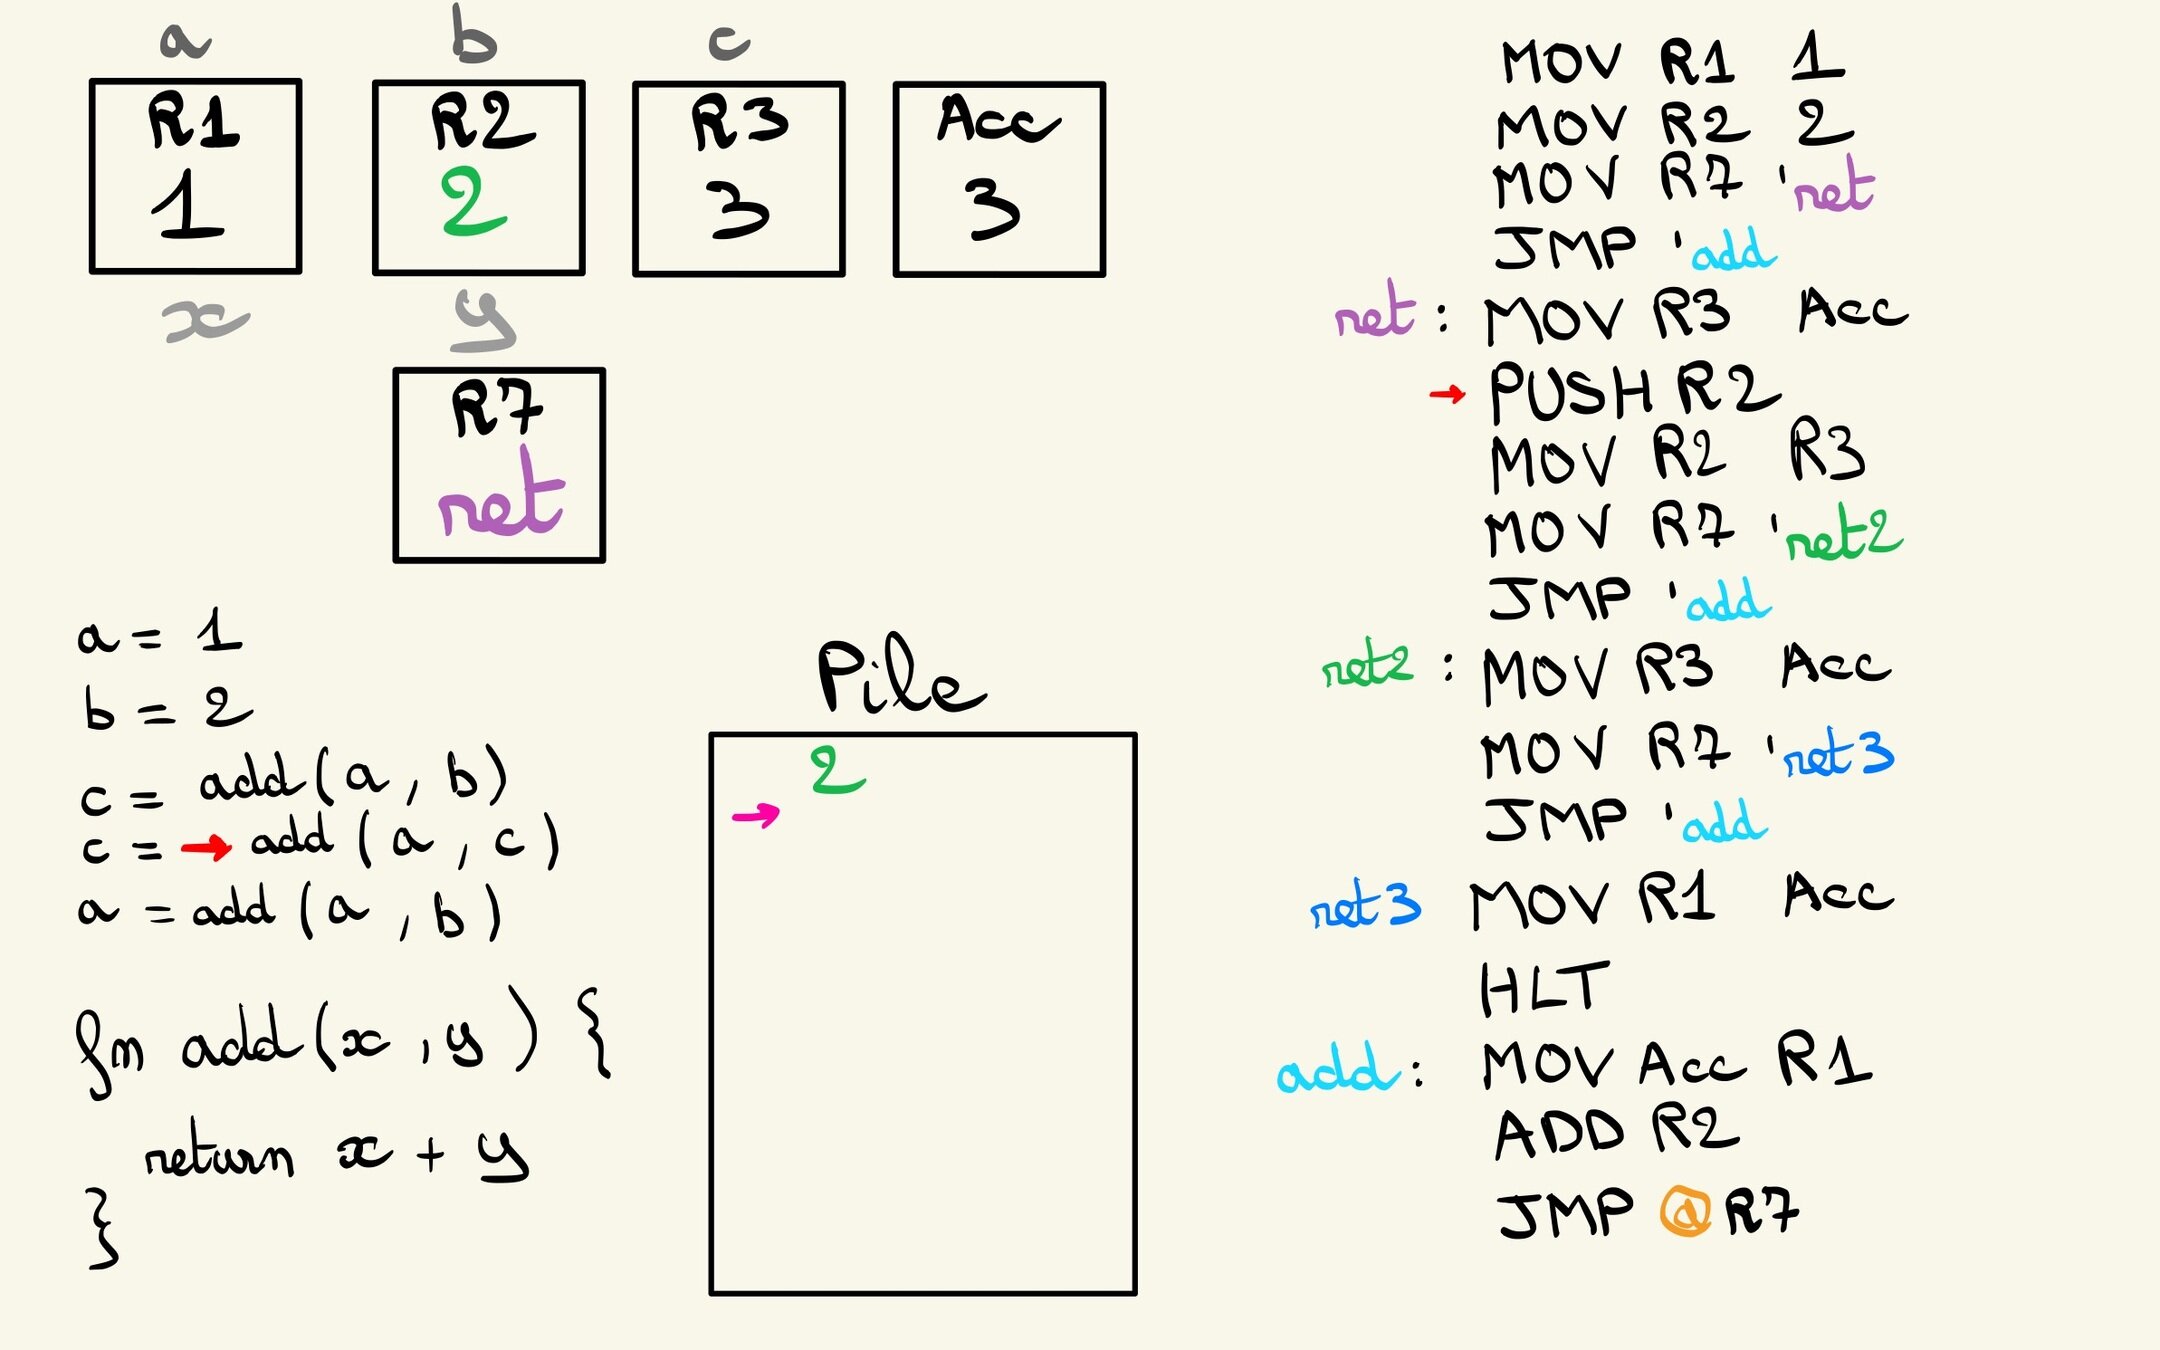 a b c
R1 R2 R3 Acc
1 2 3 3
x y
R7
ret
a = 1
b = 2
c = add(a, b)
c = → add(a, c)
a = add(a, b)
fn add(x, y) {
return x + y
}
Pile
2
→
MOV R1 1
MOV R2 2
MOV R7 'ret
JMP 'add
ret: MOV R3 Acc
→ PUSH R2
MOV R2 R3
MOV R7 'ret2
JMP 'add
ret2: MOV R3 Acc
MOV R7 'ret3
JMP 'add
ret3 MOV R1 Acc
HLT
add: MOV Acc R1
ADD R2
JMP @R7